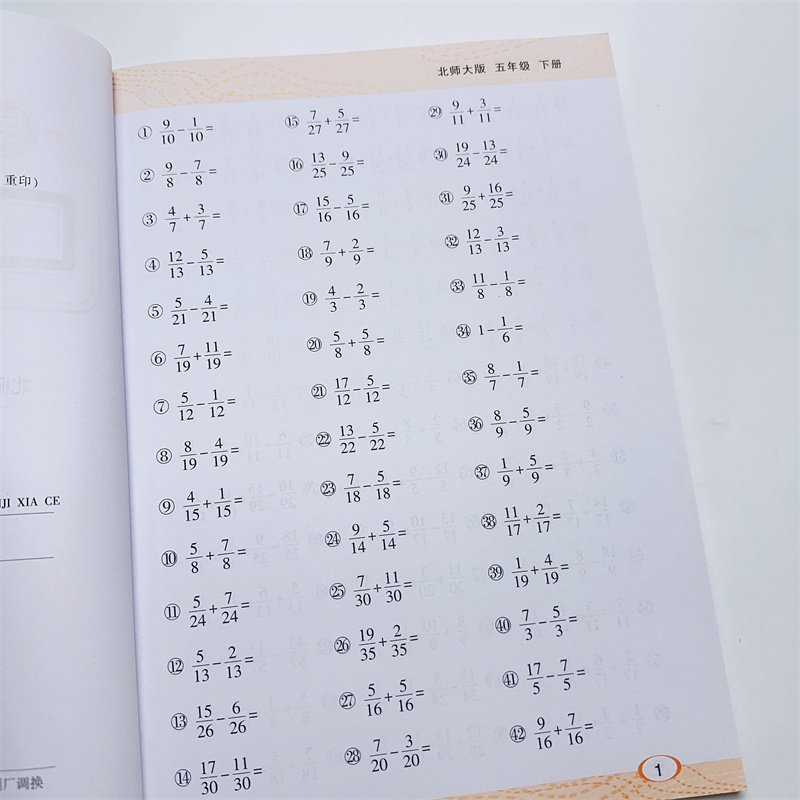 重印)
NJI XIA CE
厂调换
北师大版 五年级 下册
① 9/10 - 1/10 =
② 9/8 - 7/8 =
③ 4/7 + 3/7 =
④ 12/13 - 5/13 =
⑤ 5/21 - 4/21 =
⑥ 7/19 + 11/19 =
⑦ 5/12 - 1/12 =
⑧ 8/19 - 4/19 =
⑨ 4/15 + 1/15 =
⑩ 5/8 + 7/8 =
⑪ 5/24 + 7/24 =
⑫ 5/13 - 2/13 =
⑬ 15/26 - 6/26 =
⑭ 17/30 - 11/30 =
⑮ 7/27 + 5/27 =
⑯ 13/25 - 9/25 =
⑰ 15/16 - 5/16 =
⑱ 7/9 + 2/9 =
⑲ 4/3 - 2/3 =
⑳ 5/8 + 5/8 =
㉑ 17/12 - 5/12 =
㉒ 13/22 - 5/22 =
㉓ 7/18 - 5/18 =
㉔ 9/14 + 5/14 =
㉕ 7/30 + 11/30 =
㉖ 19/35 + 2/35 =
㉗ 5/16 + 5/16 =
㉘ 7/20 - 3/20 =
㉙ 9/11 + 3/11 =
㉚ 19/24 - 13/24 =
㉛ 9/25 + 16/25 =
㉜ 12/13 - 3/13 =
㉝ 11/8 - 1/8 =
㉞ 1 - 1/6 =
㉟ 8/7 - 1/7 =
㊱ 8/9 - 5/9 =
㊲ 1/9 + 5/9 =
㊳ 11/17 + 2/17 =
㊴ 1/19 + 4/19 =
㊵ 7/3 - 5/3 =
㊶ 17/5 - 7/5 =
㊷ 9/16 + 7/16 =
1